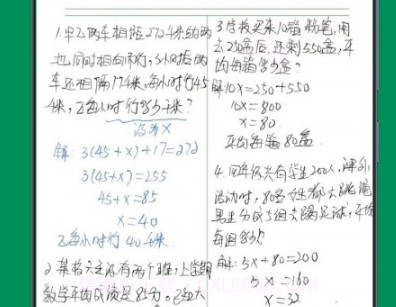 1.甲乙两车相距272千米的两
地,同时相向而行,3小时后两
车还相隔17千米,每小时行45
千米,乙每小时行多少千米?
设为X
解: 3(45+x)+17=272
3(45+x)=255
45+x=85
x=40
乙每小时行40千米.
2.某班六三还有两个班,上学期
数学平均成绩是85分.已知六
3.学校买来10箱粉笔,用
去250盒后,还剩550盒,平
均每箱多少盒?
解10X=250+550
10x=800
x=80.
平均每箱80盒.
4.四年级共有学生200人,课外
活动时,80名女生都去跳绳
男生分成5组去踢足球,平均
每组多少?
解5x+80=200
5x=160
x=32